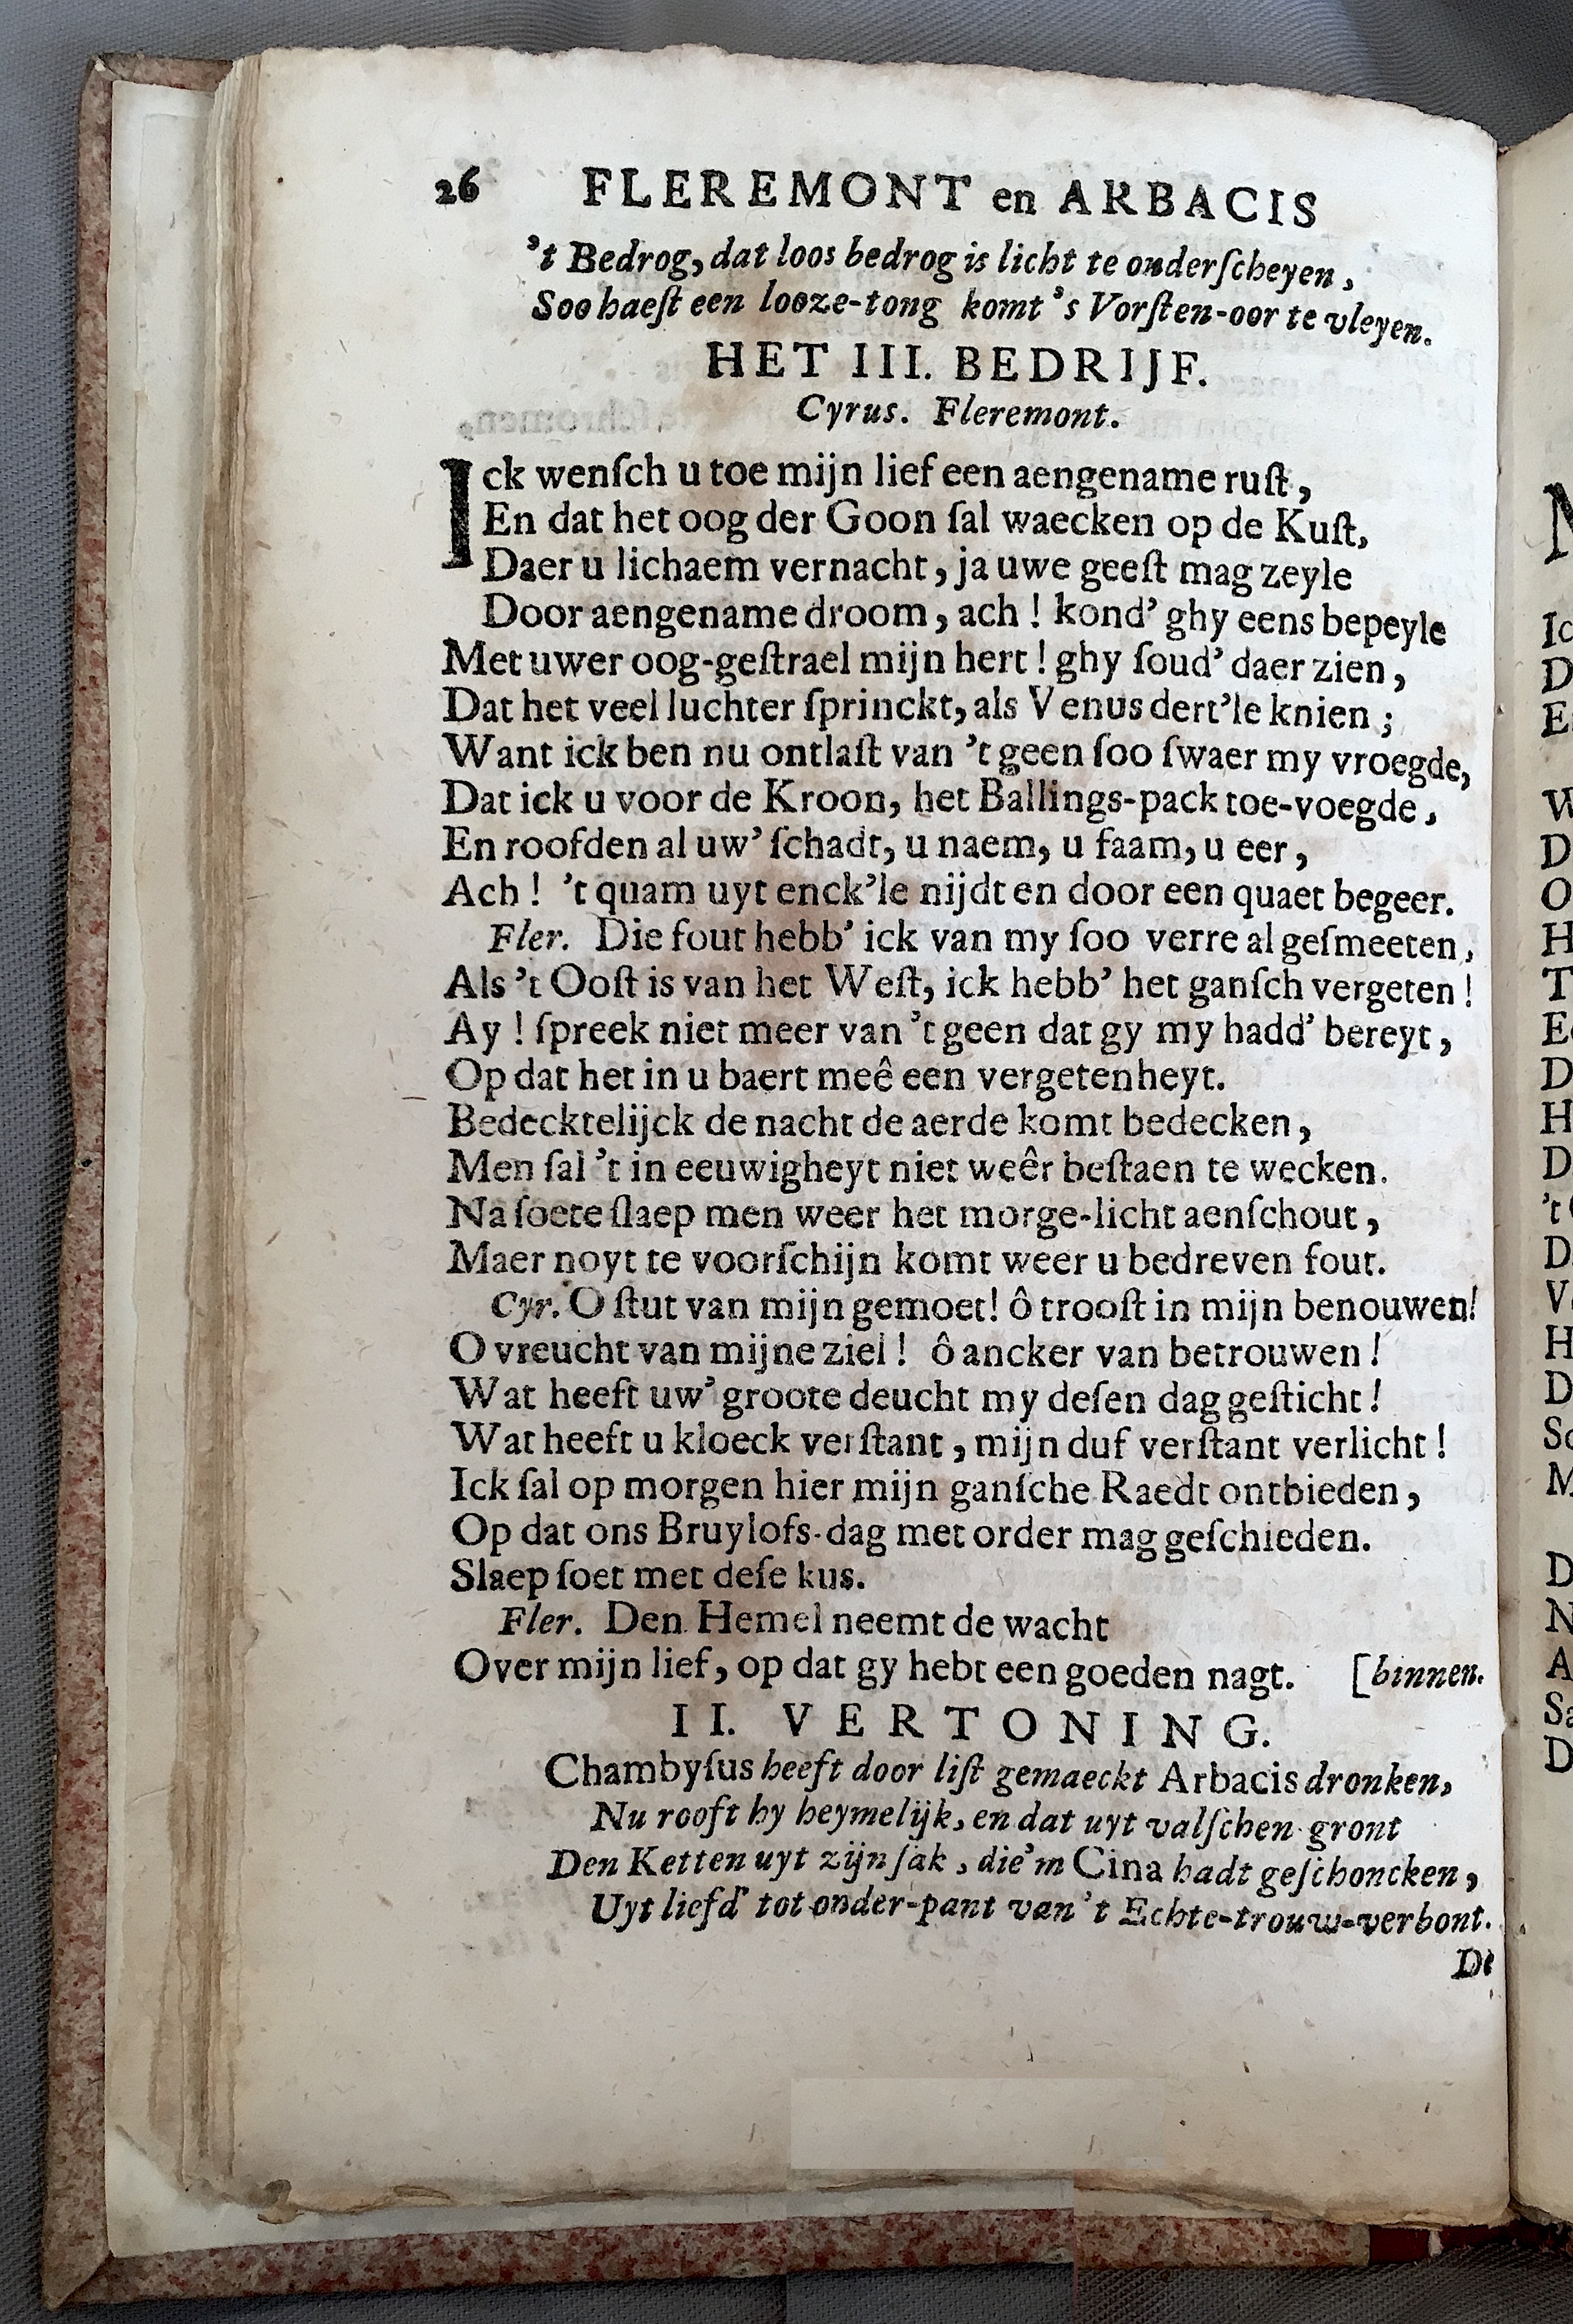 26 FLEREMONT en ARBACIS
't Bedrog, dat loos bedrog is licht te onderſcheyen,
Soo haeſt een looze-tong komt 's Vorſten-oor te vleyen.
HET III. BEDRIJF.
Cyrus. Fleremont.
Ick wenſch u toe mijn lief een aengename ruſt,
En dat het oog der Goon ſal waecken op de Kuſt,
Daer u lichaem vernacht, ja uwe geeſt mag zeyle
Door aengename droom, ach! kond' ghy eens bepeyle
Met uwer oog-geſtrael mijn hert! ghy ſoud' daer zien,
Dat het veel luchter ſprinckt, als Venus dert'le knien;
Want ick ben nu ontlaſt van 't geen ſoo ſwaer my vroegde,
Dat ick u voor de Kroon, het Ballings-pack toe-voegde,
En roofden al uw' ſchadt, u naem, u faam, u eer,
Ach! 't quam uyt enck'le nijdt en door een quaet begeer.
Fler. Die fout hebb' ick van my ſoo verre al geſmeeten,
Als 't Ooſt is van het Weſt, ick hebb' het ganſch vergeten!
Ay! ſpreek niet meer van 't geen dat gy my hadd' bereyt,
Op dat het in u baert meê een vergetenheyt.
Bedecktelijck de nacht de aerde komt bedecken,
Men ſal 't in eeuwigheyt niet weêr beſtaen te wecken.
Na ſoete ſlaep men weer het morge-licht aenſchout,
Maer noyt te voorſchijn komt weer u bedreven fout.
Cyr. O ſtut van mijn gemoet! ô trooſt in mijn benouwen!
O vreucht van mijne ziel! ô ancker van betrouwen!
Wat heeft uw' groote deucht my deſen dag geſticht!
Wat heeft u kloeck verſtant, mijn duf verſtant verlicht!
Ick ſal op morgen hier mijn ganſche Raedt ontbieden,
Op dat ons Bruylofs-dag met order mag geſchieden.
Slaep ſoet met deſe kus.
Fler. Den Hemel neemt de wacht
Over mijn lief, op dat gy hebt een goeden nagt. [binnen.
II. VERTONING.
Chambyſus heeft door liſt gemaeckt Arbacis dronken,
Nu rooft hy heymelijk, en dat uyt valſchen gront
Den Ketten uyt zijn ſak, die'm Cina hadt geſchoncken,
Uyt liefd' tot onder-pant van 't Echte-trouw-verbont.
De